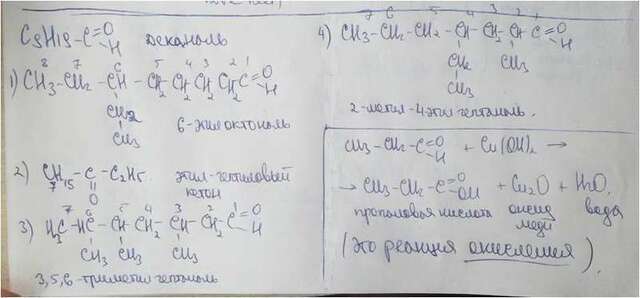 C9H19-C=O H деканаль
8 7 6 5 4 3 2 1
1) CH3-CH2-CH-CH2-CH2-CH2-CH2-C=O H
CH2
CH3
6-этилоктональ
2) C7H15-C-C2H5. этил-гептиловый
O кетон
7 6 5 4 3 2 1
3) H3C-HC-CH-CH2-CH-CH2-C=O H
CH3 CH3 CH3
3,5,6-триметил гептональ
7 6 5 4 3 2 1
4) CH3-CH2-CH2-CH-CH2-CH-C=O H
CH2 CH3
CH3
2-метил-4-этил гептональ.
CH3-CH2-C=O H + Cu(OH)2 →
→ CH3-CH2-C=O OH + Cu2O + H2O.
пропановая кислота оксид вода
меди
(это реакция окисления).